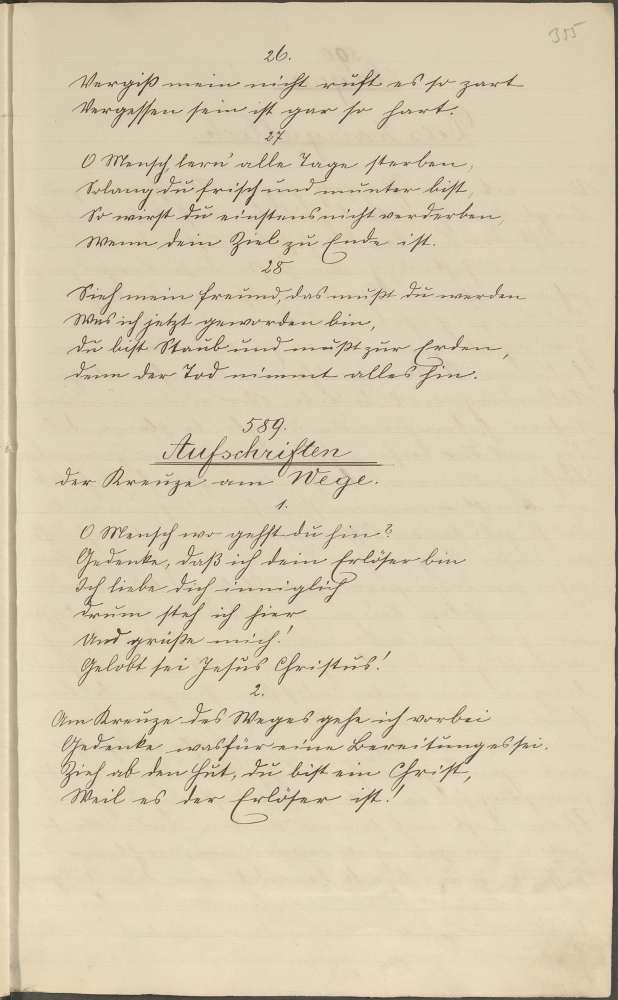 355
26.
Vergiß mein nicht ruft es so zart
Vergessen sein ist gar so hart.
27
O Mensch, lern' alle Tage sterben,
Solang du frisch und munter bist,
So wirst du einstens nicht verderben,
Wenn dein Ziel zu Ende ist.
28
Sieh mein Freund, das mußt du werden
Was ich jetzt geworden bin,
Du bist Staub und mußt zur Erden,
denn der Tod nimmt alles hin.
589.
Aufschriften
der Kreuze am Wege.
1.
O Mensch wo gehst du hin?
Gedenke, daß ich dein Erlöser bin
Ich liebe dich inniglich
Drum steh ich hier
Und grüße mich!
Gelobt sei Jesus Christus!
2.
Am Kreuze des Weges gehe ich vorbei
Gedenke was für eine Bereitung es sei.
Zieh ab den Hut, du bist ein Christ,
Weil es der Erlöser ist!